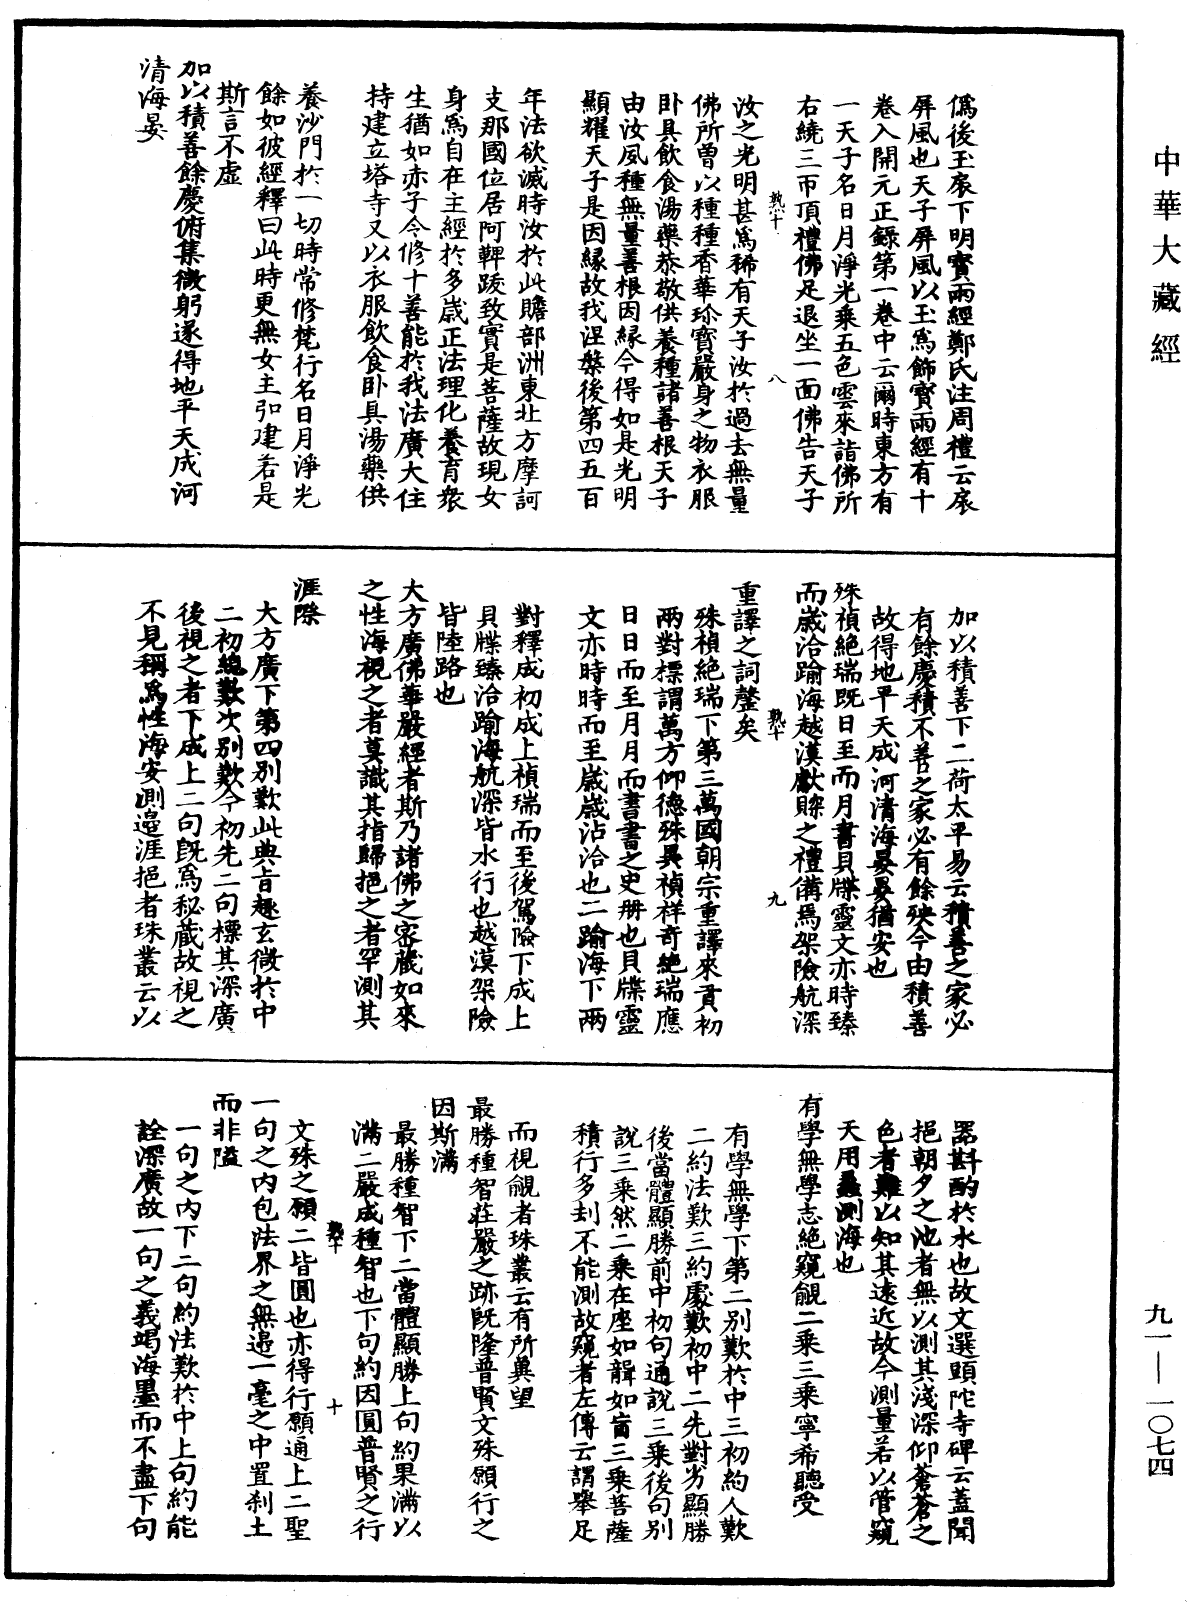 中華大藏經
偽後玉扆下明寶雨經鄭氏注周禮云扆
屏風也天子屏風以玉爲飾寶雨經有十
卷入開元正錄第一卷中云爾時東方有
一天子名日月淨光乘五色雲來詣佛所
右繞三帀頂禮佛足退坐一面佛告天子
孰十 八
汝之光明甚爲稀有天子汝於過去無量
佛所曾以種種香華珍寶嚴身之物衣服
卧具飲食湯藥恭敬供養種諸善根天子
由汝風種無量善根因緣今得如是光明
顯耀天子是因緣故我涅槃後第四五百
年法欲滅時汝於此贍部洲東北方摩訶
支那國位居阿鞞跋致實是菩薩故現女
身爲自在主經於多歲正法理化養育衆
生猶如赤子令修十善能於我法廣大住
持建立塔寺又以衣服飲食卧具湯藥供
養沙門於一切時常修梵行名日月淨光
餘如彼經釋曰此時更無女主弘建若是
斯言不虛
加以積善餘慶俯集微躬遂得地平天成河
清海晏
加以積善下二荷太平易云積善之家必
有餘慶積不善之家必有餘殃今由積善
故得地平天成河清海晏晏猶安也
殊禎絶瑞既日至而月書貝牒靈文亦時臻
而歲洽踰海越漠獻賝之禮備焉架險航深
孰十 九
重譯之詞罄矣
殊禎絶瑞下第三萬國朝宗重譯來貢初
兩對標謂萬方仰德殊異禎祥奇絶瑞應
日日而至月月而書書之史册也貝牒靈
文亦時時而至歲歲沾洽也二踰海下兩
對釋成初成上禎瑞而至後駕險下成上
貝牒臻洽踰海航深皆水行也越漠架險
皆陸路也
大方廣佛華嚴經者斯乃諸佛之密藏如來
之性海視之者莫識其指歸挹之者罕測其
涯際
大方廣下第四别歎此典旨趣玄微於中
二初總歎次别歎今初先二句標其深廣
後視之者下成上二句旣爲秘藏故視之
不見稱爲性海安測邉涯挹者珠叢云以
器斟酌於水也故文選頭陀寺碑云蓋聞
挹朝夕之池者無以測其淺深仰蒼蒼之
色者難以知其遠近故今測量若以管窺
天用蠡測海也
有學無學志絶窺覦二乘三乘寧希聽受
有學無學下第二别歎於中三初約人歎
二約法歎三約處歎初中二先對劣顯勝
後當體顯勝前中初句通說三乘後句别
說三乘然二乘在座如聾如盲三乘菩薩
積行多刧不能測故窺者左傳云謂舉足
而視覦者珠叢云有所冀望
最勝種智莊嚴之跡既隆普賢文殊願行之
因斯滿
最勝種智下二當體顯勝上句約果滿以
滿二嚴成種智也下句約因圓普賢之行
孰十 十
文殊之願二皆圓也亦得行願通上二聖
一句之內包法界之無邉一毫之中置刹土
而非隘
一句之内下二句約法歎於中上句約能
詮深廣故一句之義竭海墨而不盡下句
九一—一〇七四